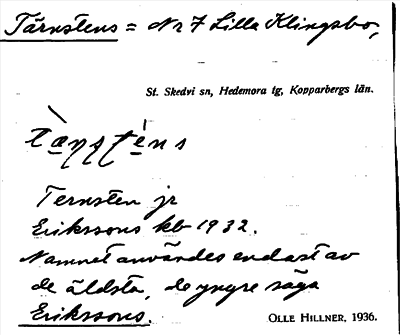 Tärnstens = No 7 Lilla Klingsbo,
St. Skedvi sn, Hedemora tg, Kopparbergs län.
Ternsten jr
Erikssons kb 1932.
Namnet användes endast av
de äldsta, de yngre säga
Erikssons.
OLLE HILLNER, 1936.